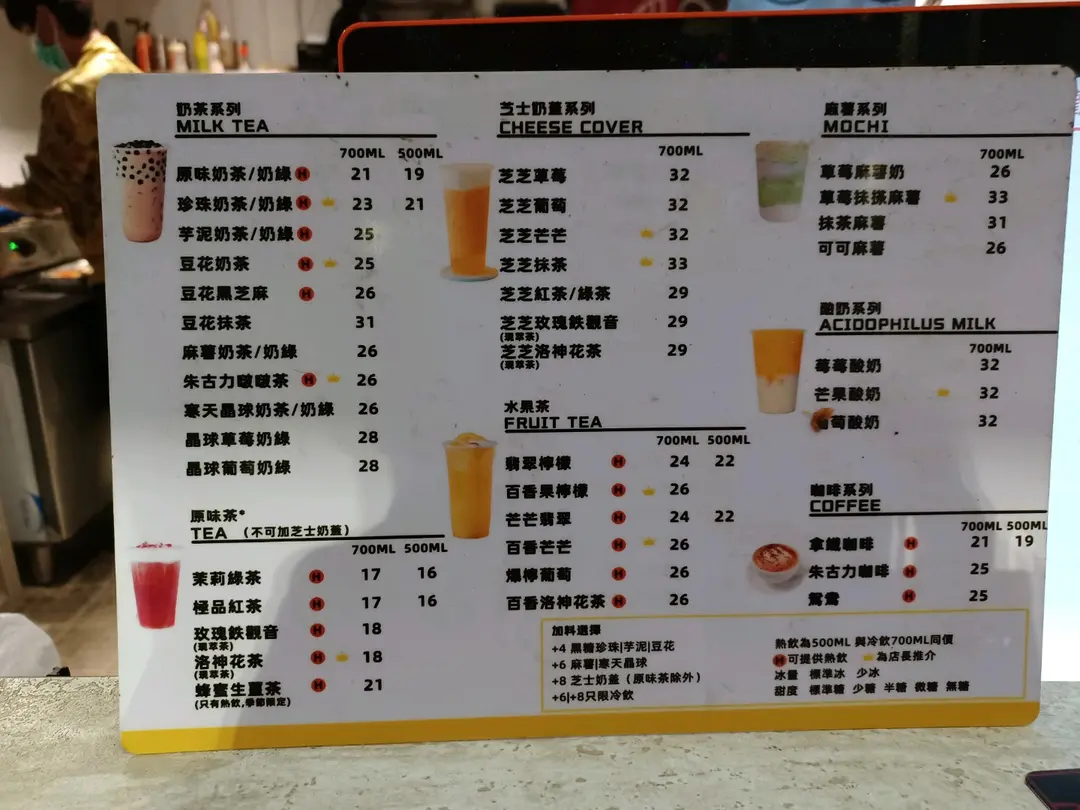 奶茶系列
MILK TEA
700ML 500ML
原味奶茶/奶綠 H 21 19
珍珠奶茶/奶綠 H 23 21
芋泥奶茶/奶綠 H 25
豆花奶茶 H 25
豆花黑芝麻 H 26
豆花抹茶 31
麻薯奶茶/奶綠 26
朱古力啵啵茶 H 26
寒天晶球奶茶/奶綠 26
晶球草莓奶綠 28
晶球葡萄奶綠 28
原味茶*
TEA (不可加芝士奶蓋)
700ML 500ML
茉莉綠茶 H 17 16
極品紅茶 H 17 16
玫瑰鉄觀音 H 18
(現萃茶)
洛神花茶 H 18
(現萃茶)
蜂蜜生薑茶 H 21
(只有熱飲,季節限定)
芝士奶蓋系列
CHEESE COVER
700ML
芝芝草莓 32
芝芝葡萄 32
芝芝芒芒 32
芝芝抹茶 33
芝芝紅茶/綠茶 29
芝芝玫瑰鉄觀音 29
(現萃茶)
芝芝洛神花茶 29
(現萃茶)
水果茶
FRUIT TEA
700ML 500ML
翡翠檸檬 H 24 22
百香果檸檬 H 26
芒芒翡翠 H 24 22
百香芒芒 H 26
爆檸葡萄 H 26
百香洛神花茶 H 26
麻薯系列
MOCHI
700ML
草莓麻薯奶 26
草莓抹茶麻薯 33
抹茶麻薯 31
可可麻薯 26
酸奶系列
ACIDOPHILUS MILK
700ML
莓莓酸奶 32
芒果酸奶 32
萄酸奶 32
咖啡系列
COFFEE
700ML 500ML
拿鐵咖啡 H 21 19
朱古力咖啡 H 25
鴛鴦 H 25
加料選擇
+4 黑糖珍珠|芋泥|豆花
+6 麻薯|寒天晶球
+8 芝士奶蓋（原味茶除外）
+6|+8只限冷飲
熱飲為500ML 與冷飲700ML同價
H可提供熱飲 為店長推介
冰量 標準冰 少冰
甜度 標準糖 少糖 半糖 微糖 無糖